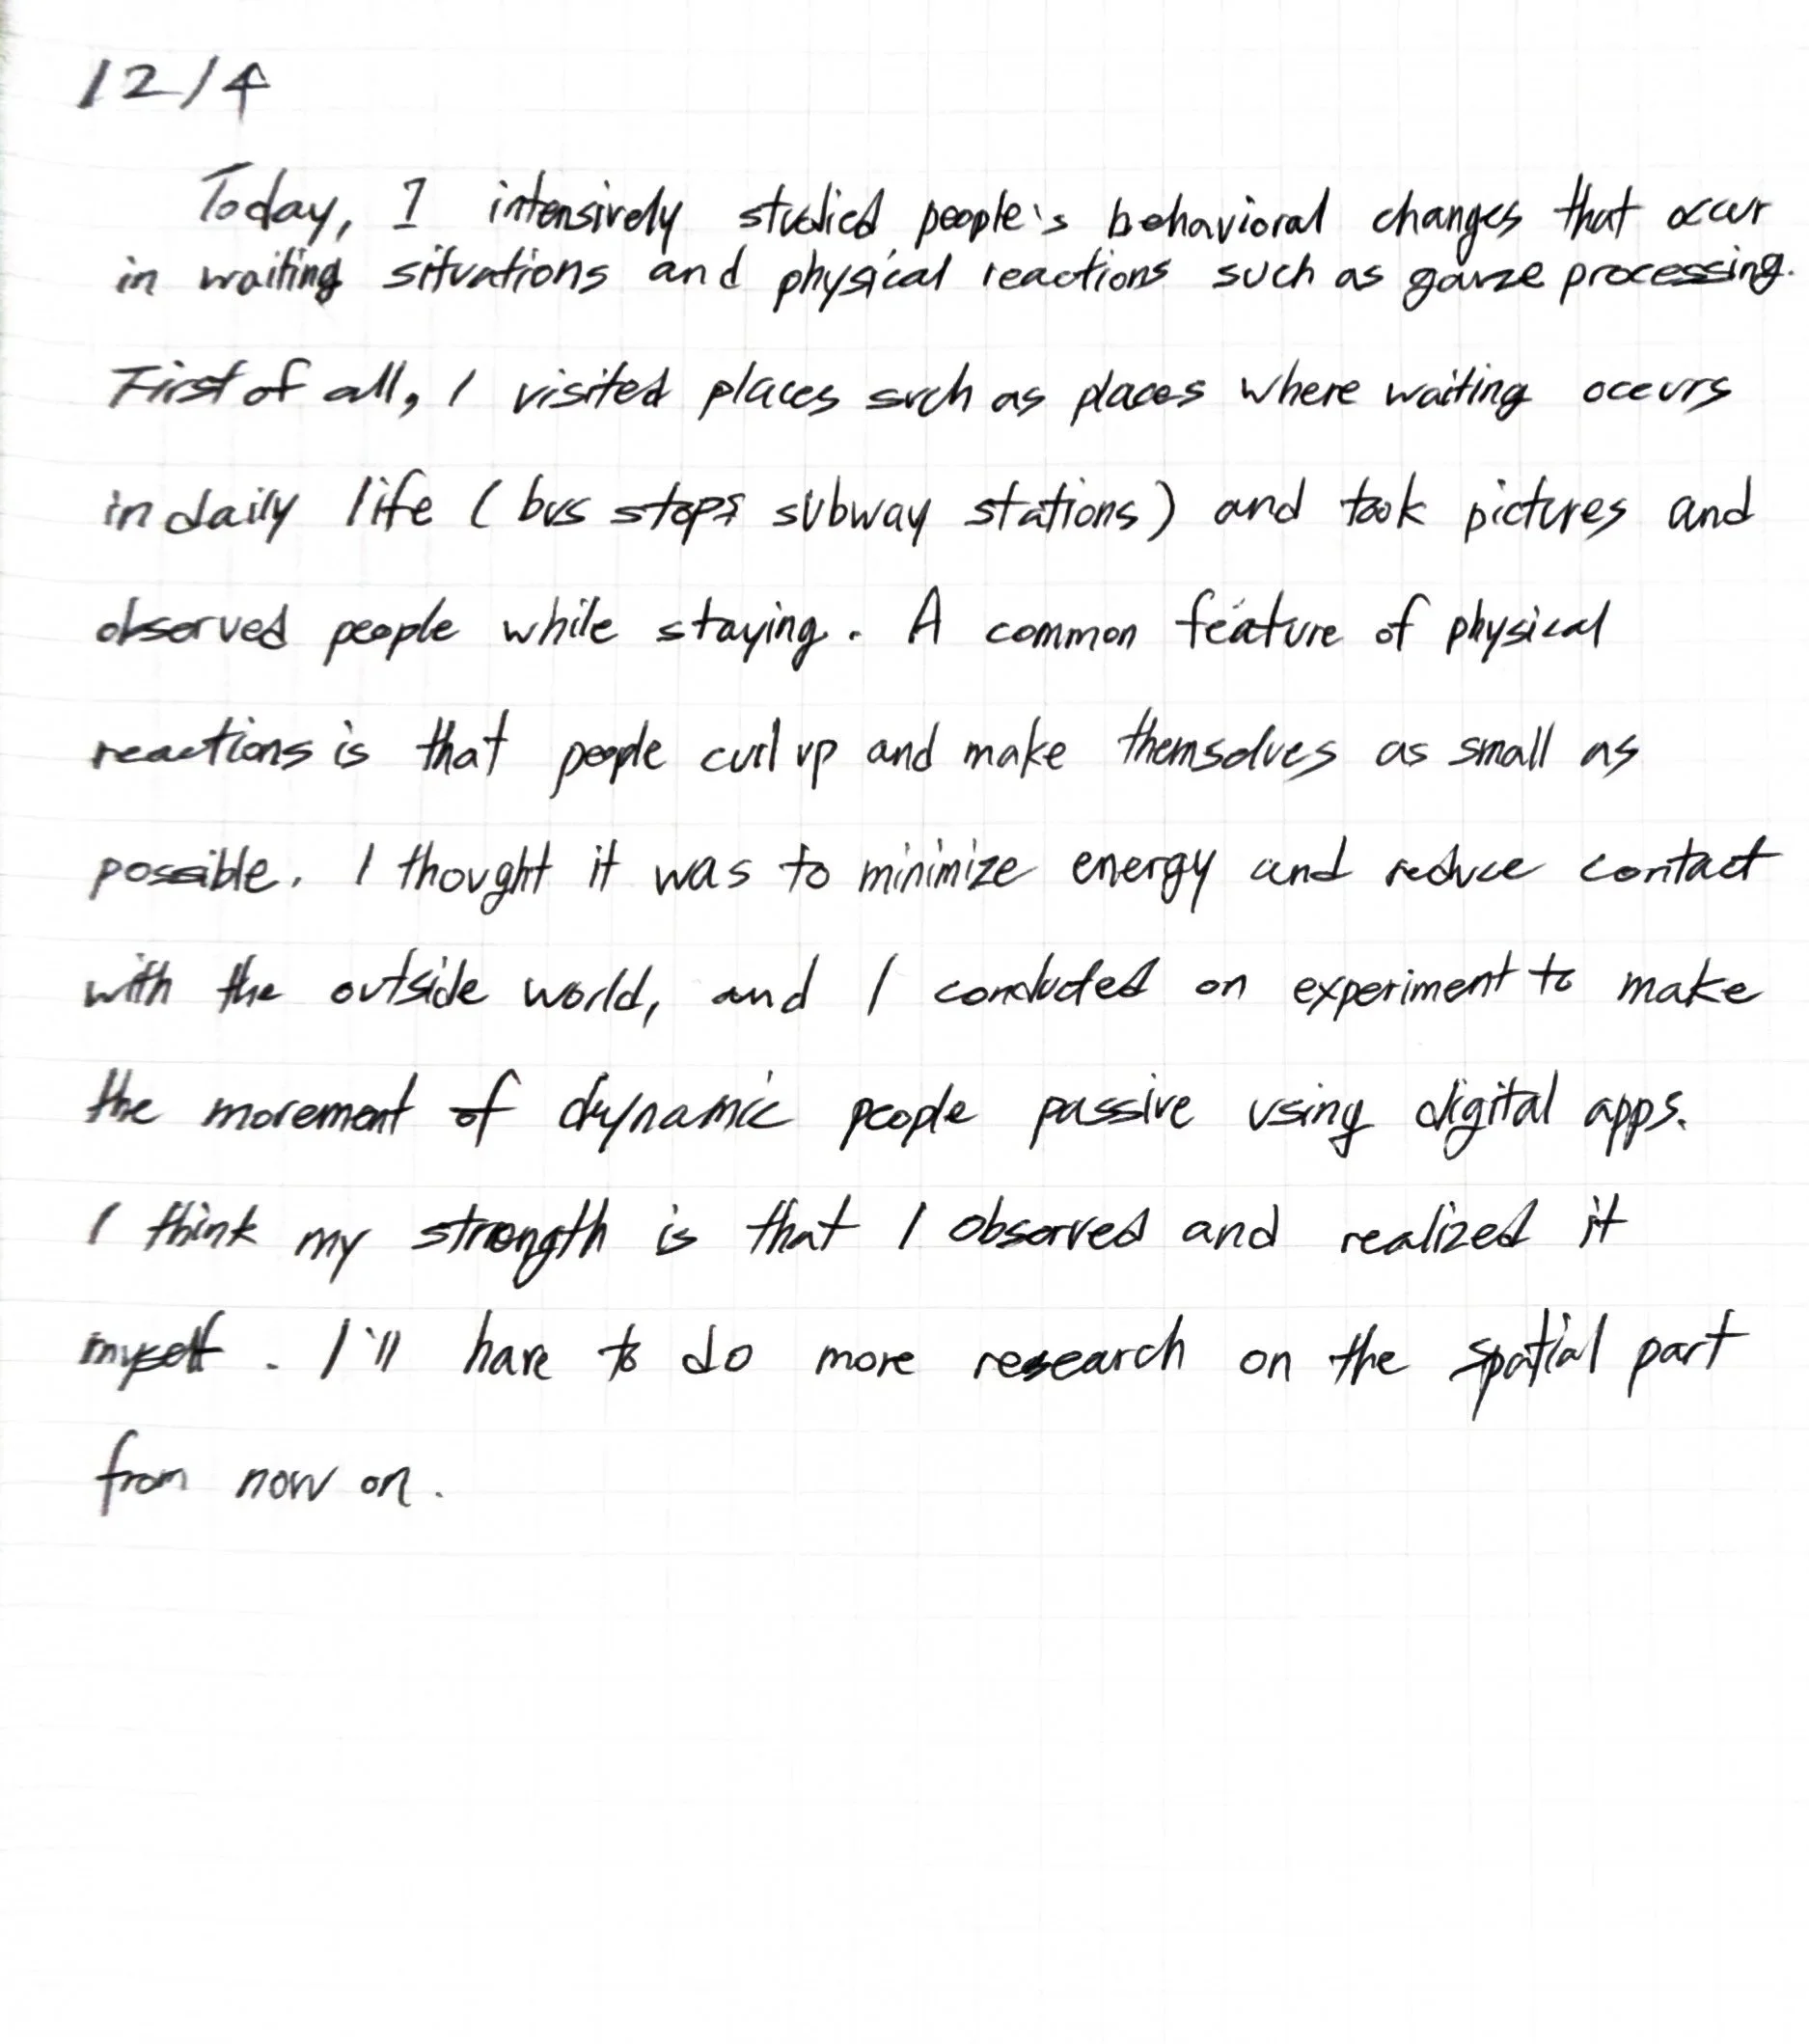 12/4
Today, I intensively studied people's behavioral changes that occur
in waiting situations and physical reactions such as gaze processing.
First of all, I visited places such as places where waiting occurs
in daily life (bus stops subway stations) and took pictures and
observed people while staying. A common feature of physical
reactions is that people curl up and make themselves as small as
possible. I thought it was to minimize energy and reduce contact
with the outside world, and I conducted an experiment to make
the movement of dynamic people passive using digital apps.
I think my strength is that I observed and realized it
myself. I'll have to do more research on the spatial part
from now on.